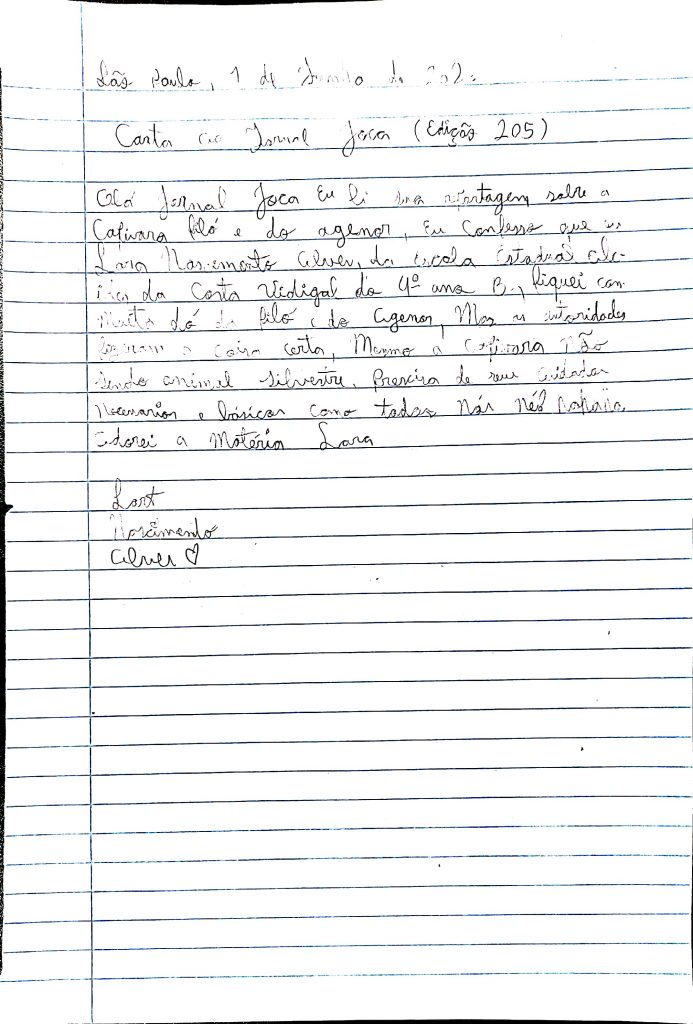 São Paulo, 1 de Junho de 202
Carta ao Jornal Joca (Edição 205)
Olá Jornal Joca Eu li sua reportagem sobre a
Capivara filó e do agenor, Eu Confesso que eu
Lara Nascimento Alves, da escola Estadual Alci-
da Costa Vidigal do 4º ano B, fiquei com
Muita dó da filó e do Agenor, Mas as autoridades
fizeram a coisa certa, Mesmo a capivara não
sendo animal silvestre, Precisa de seus cuidados
Necessarios e básicos como todos Nós Né?
Adorei a Matéria Lara
Nascimento
Alves ♡